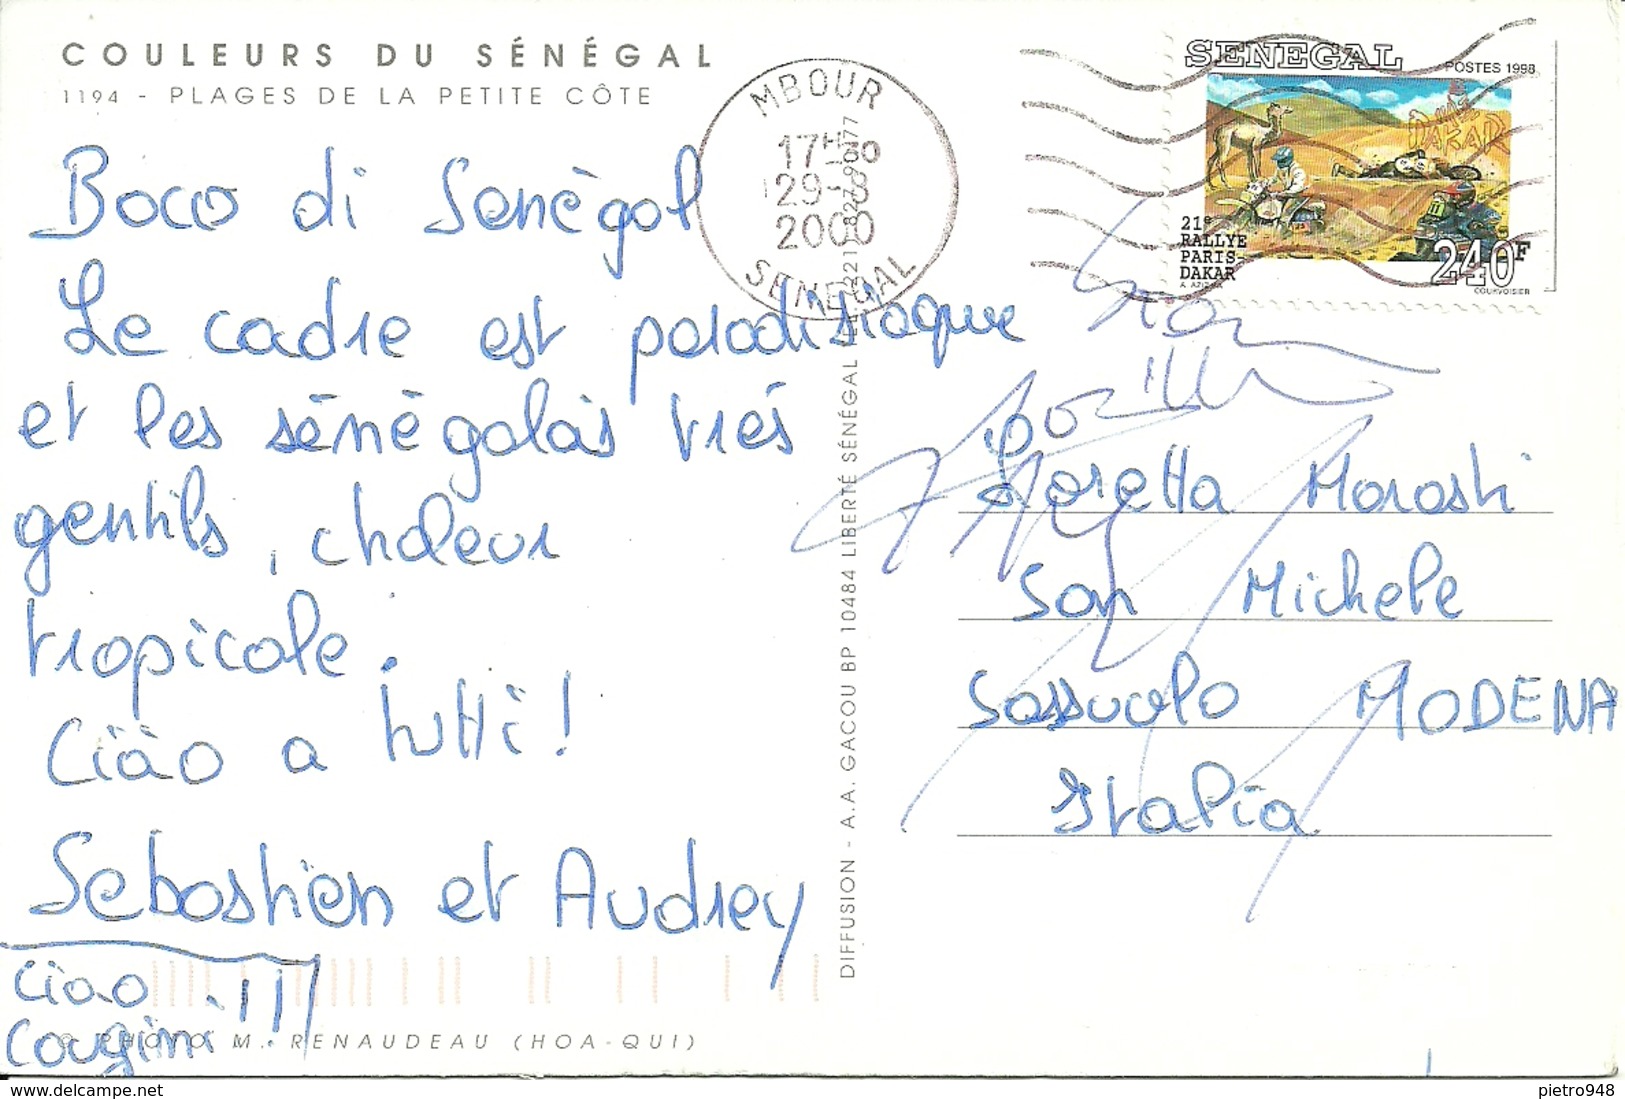 COULEURS DU SÉNÉGAL
1194 - PLAGES DE LA PETITE CÔTE
Baca di Sénègal
Le cadre est paradisiaque
et les sénégalais trés
gentils, chaleur
tropicale.
Ciào a tutti!
Sebastien et Audrey
Ciao
Cougini!!!
© PHOTO M. RENAUDEAU (HOA-QUI)
DIFFUSION - A.A. GACOU BP 10484 LIBERTÉ SÉNÉGAL TEL (221) 827 90 77
MBOUR
2000
SENEGAL
SENEGAL
POSTES 1998
DAKAR
21e
RALLYE
PARIS-
DAKAR
240F
COURVOISIER
Loretta Morosti
San Michele
Sassuolo MODENA
Italia
www.delcampe.net
pietro948